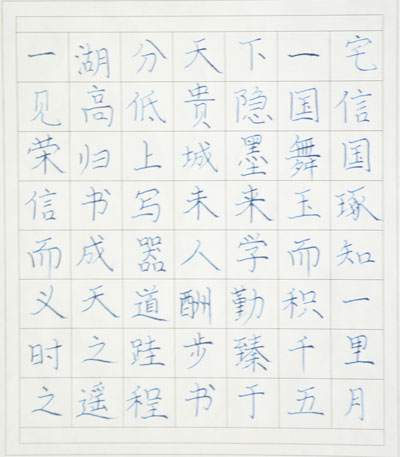 一湖分天下一宅
见高低贵隐国信
荣归上城墨舞国
信书写未来玉琢
而成器人学而知
义天道酬勤积一
时之跬步臻千里
之遥程书于五月